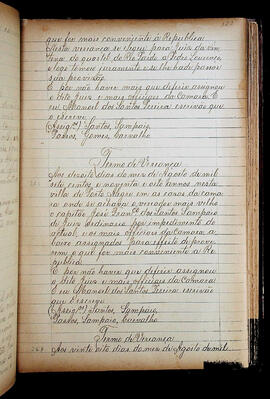 que for mais conveniente á Republica
Nesta vereança se elegeu para Juiz da vin
tena do quartel do Rio Pardo a Pedro Lourenço,
e logo tomou juramento e se lhe hade passar
sua provisão.
E por não haver mais que deferir assignou
o dito Juiz e mais officiaes da Camara E
eu Manoel dos Santos Pereira escrivão que
o escrevi
(Assigos.) Santos, Sampaio,
Passos, Gomes, Carvalho
Termo de Vereança
Aos dezoito dias do mez de Agosto de mil
sete centos e noventa e oito annos nesta
villa de Porto Alegre em as casas da cama
ra onde se achava o vereador mais velho
o capitão José Franco. dos Santos Sampaio
de Juiz Ordinario por impedimento do
actual, e os mais officiaes da camara a
baixo assignados para effeito de prove
rem o que for mais conveniente a Re
publica
E por não haver que deferir assignou
o dito Juiz e mais officiaes da Camara
E eu Manoel dos Santos Pereira escrivão
que Escrevi
(Assigos.) Santos, Sampaio,
Passos, Sampaio, Carvalho
Termo de Vereança
Aos vinte oito dias do mez de Agosto de mil